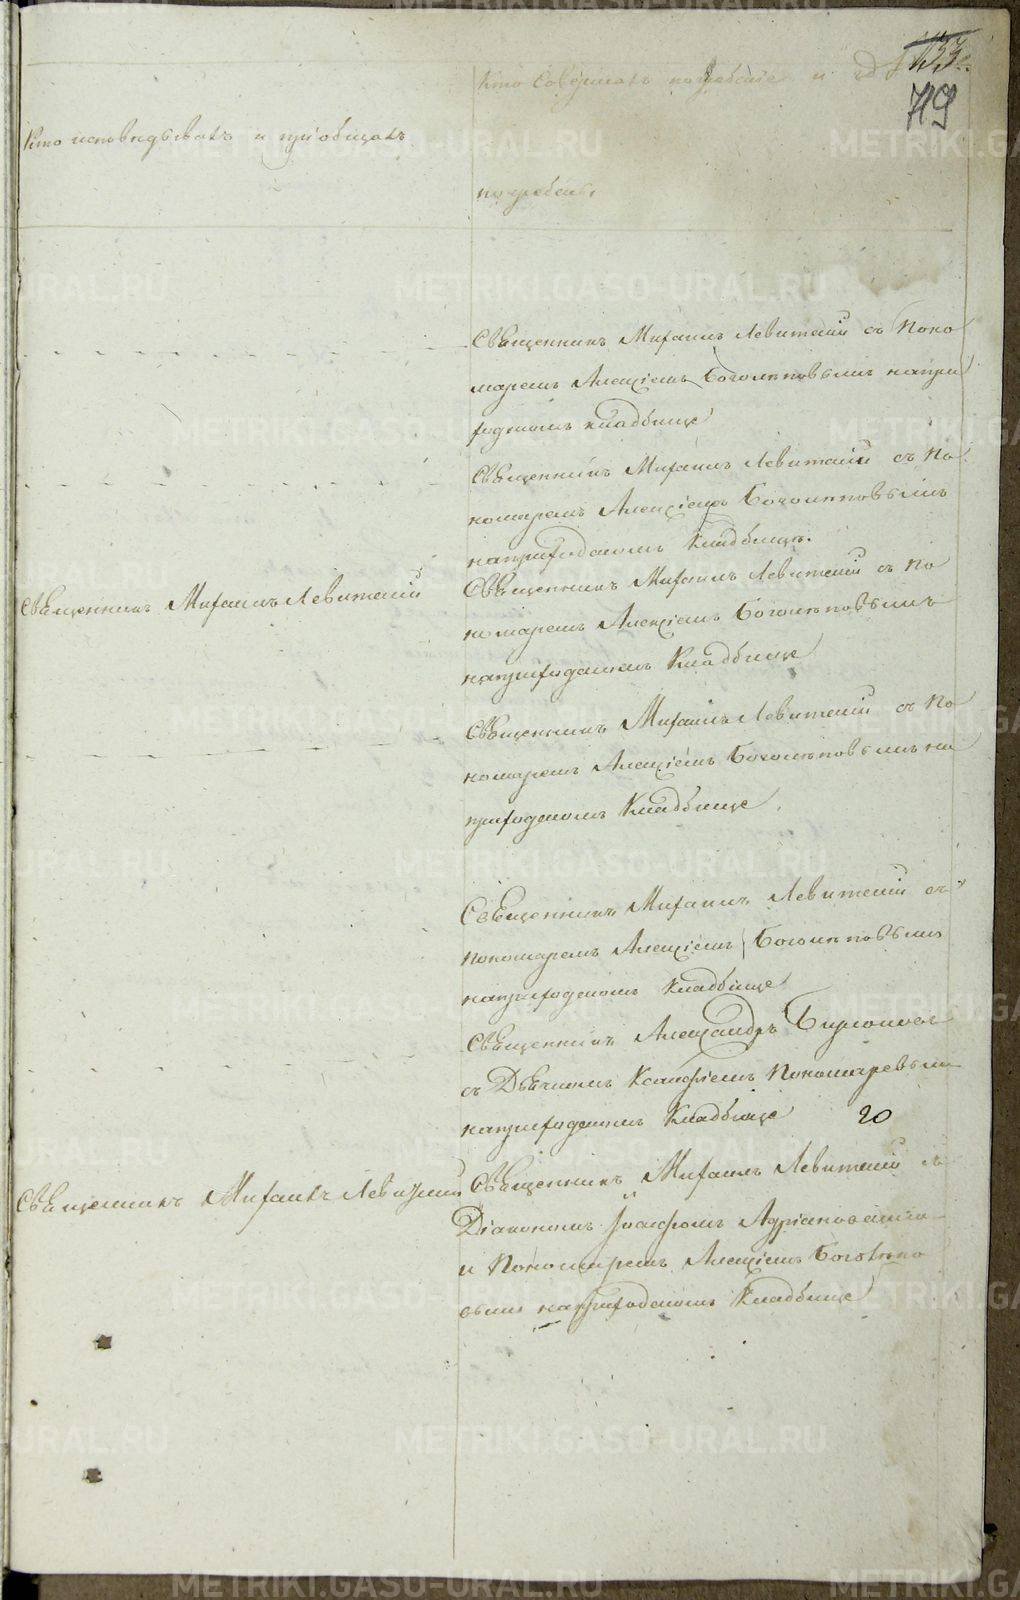 153
719
Кто исповѣдывалъ и пріобщалъ
Кто совершалъ погребеніе и гдѣ
погребенъ.
Священникъ Михаилъ Левитскій съ Поно
маремъ Алексіемъ Боголѣповымъ на при
ходскомъ кладбище
Священникъ Михаилъ Левитскій съ По
номаремъ Алексіемъ Боголѣповымъ
на приходскомъ Кладбище.
Священникъ Михаилъ Левитскій
Священникъ Михаилъ Левитскій съ По
номаремъ Алексіемъ Боголѣповымъ
на приходскомъ Кладбище
Священникъ Михаилъ Левитскій съ По
номаремъ Алексіемъ Боголѣповымъ на
приходскомъ Кладбище.
Священникъ Михаилъ Левитскій съ
пономаремъ Алексіемъ Боголѣповымъ
на приходскомъ Кладбище
Священникъ Александръ
съ Дьячкомъ Ксанфіемъ Пономаревымъ
на приходскомъ Кладбище 20
Священникъ Михаилъ Левитскій
Священникъ Михаилъ Левитскій съ
Діакономъ Іоасафомъ Адріановскимъ
и Пономаремъ Алексіемъ Боголѣпо
вымъ на приходскомъ Кладбище
METRIKI.GASO-URAL.RU